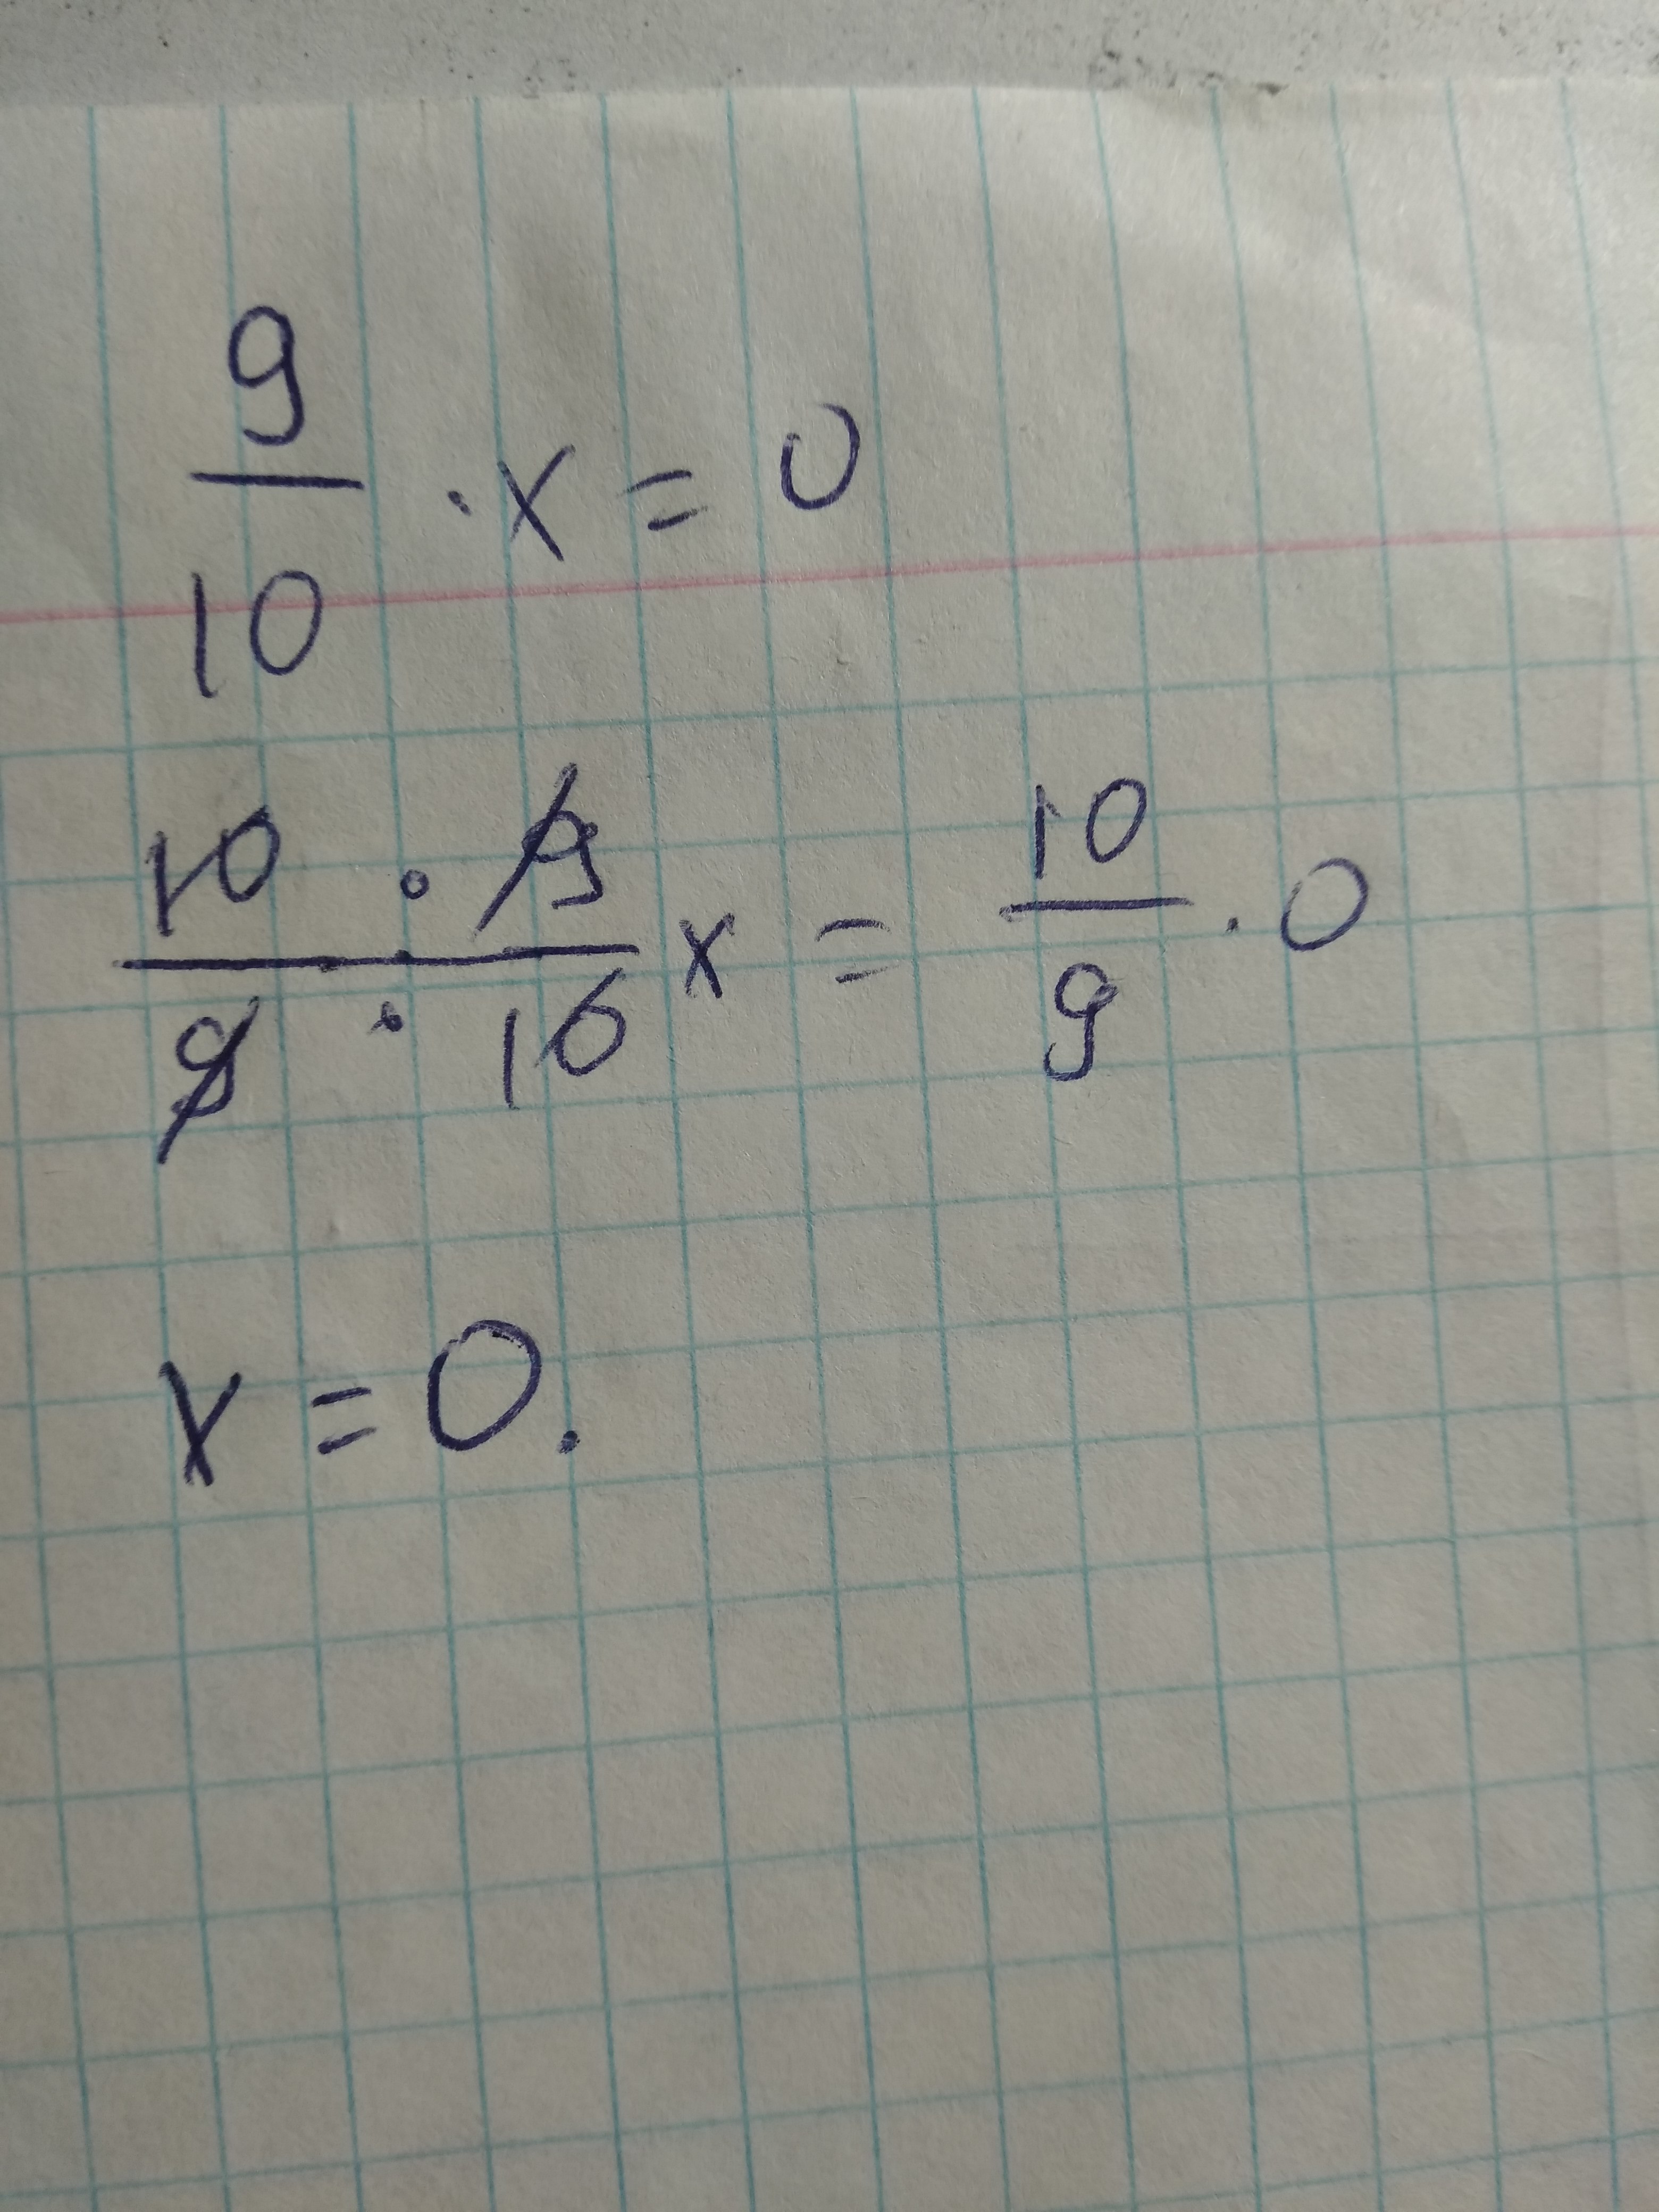 9/10 · x = 0
10 · 9 / 9 · 10 x = 10/9 · 0
x = 0.